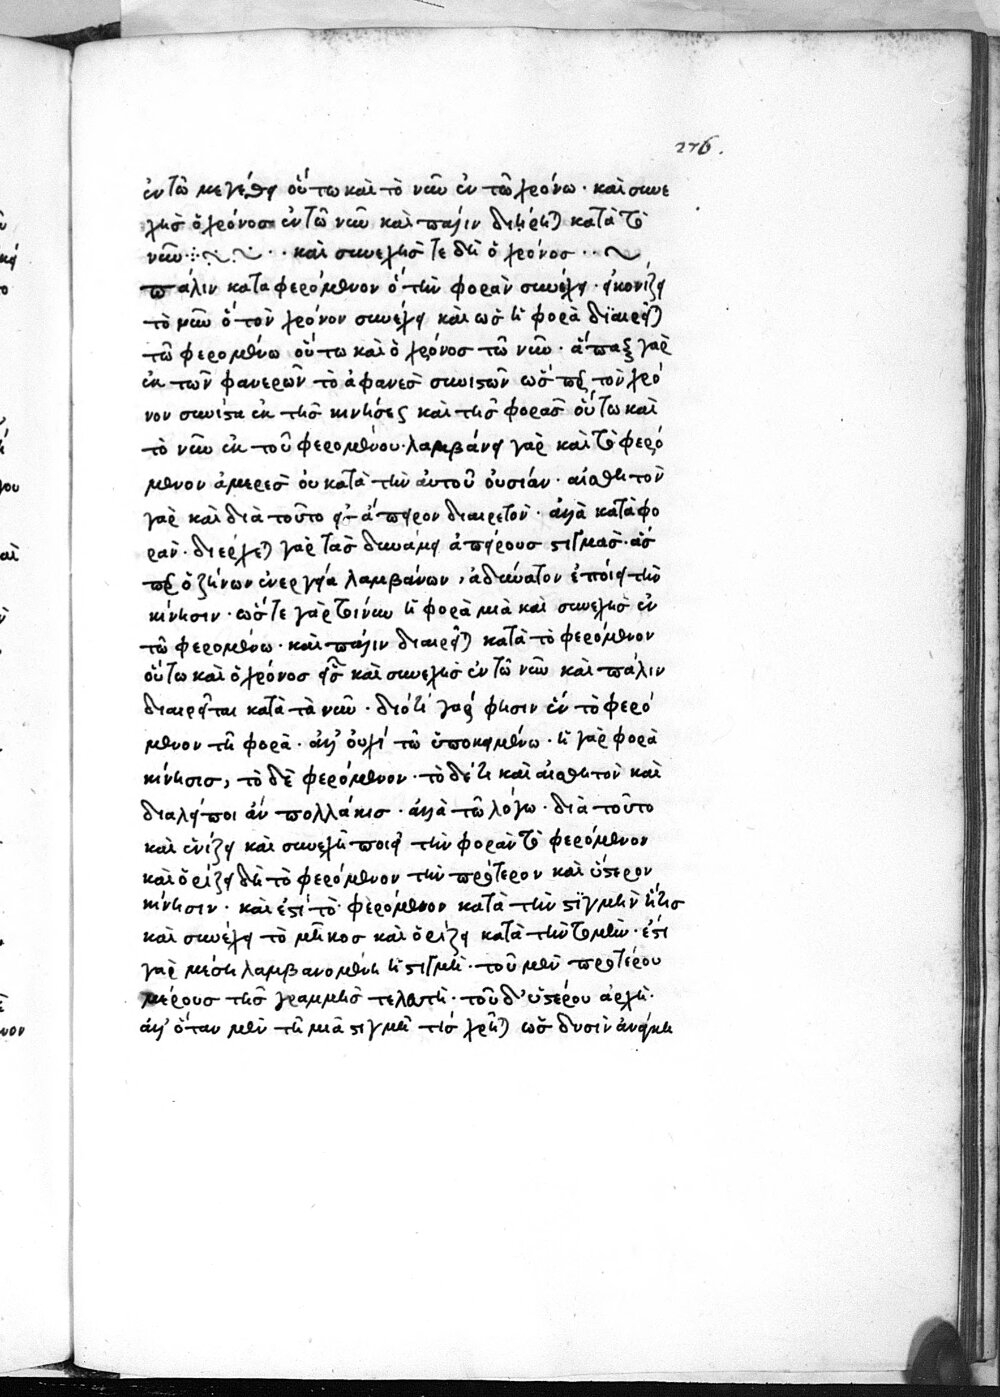 276.
ἐν τῶ μεγέθει οὕτω καὶ τὸ νῦν ἐν τῶ χρόνω· καὶ συνε
χὴς ὁ χρόνος ἐν τῶ νῦν καὶ πάλιν διήρηται κατὰ τὸ
νῦν· καὶ συνεχής τε δὴ ὁ χρόνος··
πάλιν καταφερόμενον ὅ τὴν φορὰν συνέχει· εἰκονίζει
τὸ νῦν ὅ τὸν χρόνον συνέχει καὶ ὡς ἡ φορὰ διαιρεῖται
τῶ φερομένω οὕτω καὶ ὁ χρόνος τῶ νῦν· ἅπαξ γὰρ
ἐκ τῶν φανερῶν τὸ ἀφανὲς συνιστῶν ὥσπερ τὸν χρό
νον συνίστα ἐκ τῆς κινήσεως καὶ τῆς φορᾶς οὕτω καὶ
τὸ νῦν ἐκ τοῦ φερομένου· λαμβάνει γὰρ καὶ τὸ φερό
μενον ἀμερὲς οὐ κατὰ τὴν αὐτοῦ οὐσίαν· αἰσθητὸν
γὰρ καὶ διὰ τοῦτο εἰς ἄπειρον διαιρετόν· ἀλλὰ κατὰ φο
ράν· διέρχεται γὰρ τὰς δυνάμει ἀπείρους στιγμάς· ἅς
περ ὁ ζήνων ἐνεργεία λαμβάνων, ἀδύνατον ἐποίει τὴν
κίνησιν· ὥστε γὰρ γίνεται ἡ φορὰ μιὰ καὶ συνεχὴς ἐν
τῶ φερομένω· καὶ πάλιν διαιρεῖται κατὰ τὸ φερόμενον
οὕτω καὶ ὁ χρόνος εἷς καὶ συνεχὴς ἐν τῶ νῦν καὶ πάλιν
διαιρεῖται κατὰ τὰ νῦν· διότί γάρ φησιν ἓν τὸ φερό
μενον τῆ φορὰ· ἀλλ' οὐχί τῶ ὑποκειμένω· ἡ γὰρ φορὰ
κίνησις, τὸ δὲ φερόμενον· τὸ δέ τι καὶ αἰσθητὸν καὶ
διαλείποι ἄν πολλάκις· ἀλλὰ τῶ λόγω· διὰ τοῦτο
καὶ ἑνίζει καὶ συνεχῆ ποιεῖ τὴν φορὰν τὸ φερόμενον
καὶ ὁρίζει δὴ τὸ φερόμενον τὴν πρότερον καὶ ὕστερον
κίνησιν· καὶ ἐστί τὸ φερόμενον κατὰ τὴν στιγμὴν ἥτις
καὶ συνέχει τὸ μῆκος καὶ ὁρίζει κατὰ τὴν τομήν· ἐστι
γὰρ μέση λαμβανομένη ἡ στιγμὴ· τοῦ μὲν προτέρου
μέρους τῆς γραμμῆς τελευτή· τοῦ δ' ὑστέρου ἀρχή·
ἀλλ' ὅταν μὲν τῆ μιᾶ στιγμῆ τίς χρῆται ὡς δυσὶν ἀνάγκη